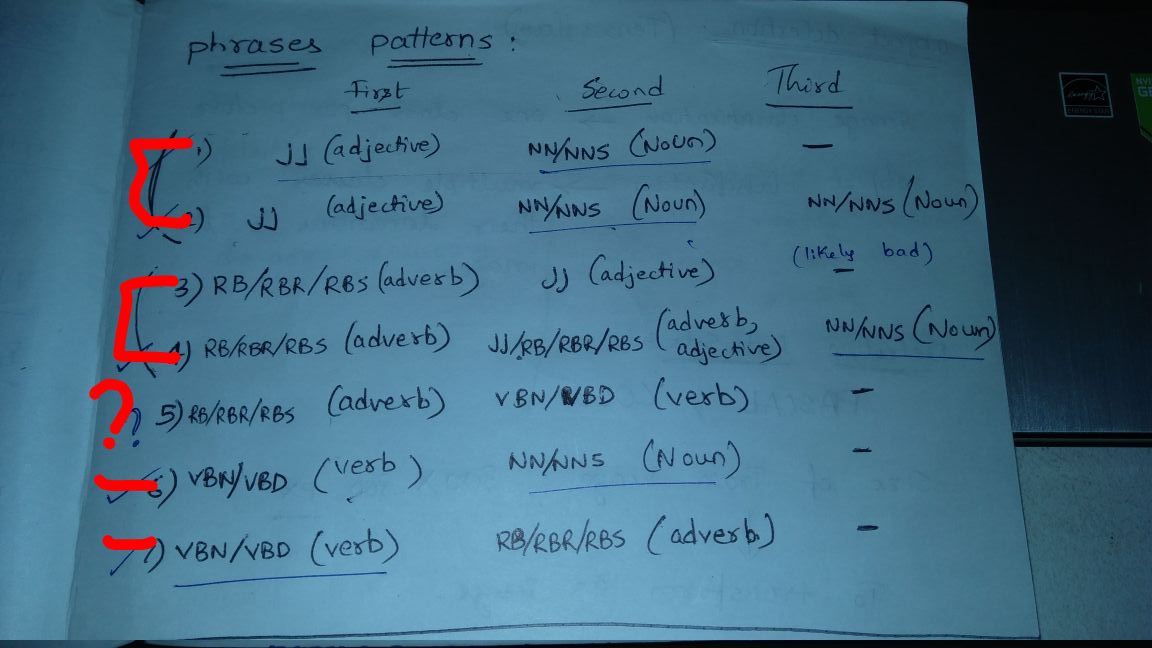 phrases patterns :
First Second Third
1) JJ (adjective) NN/NNS (Noun) —
2) JJ (adjective) NN/NNS (Noun) NN/NNS (Noun)
3) RB/RBR/RBS (adverb) JJ (adjective) (likely bad) —
4) RB/RBR/RBS (adverb) JJ/RB/RBR/RBS (adverb, adjective) NN/NNS (Noun)
? ? 5) RB/RBR/RBS (adverb) VBN/VBD (verb) —
6) VBN/VBD (verb) NN/NNS (Noun) —
7) VBN/VBD (verb) RB/RBR/RBS (adverb) —